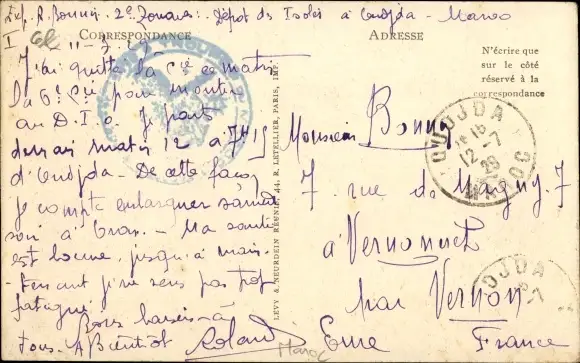 Exp. R. Bonnin. 2e Zouaves. Dépôt des Isolés à Oudjda - Maroc
CORRESPONDANCE
ADRESSE
N'écrire que
sur le côté
réservé à la
correspondance
J'ai quitté la Cie ce matin
la 6e Cie pour monter
au D. I. O. Je pars
demain matin 12 à 7H15
d'Oudjda - De cette façon
je compte embarquer samedi
soir à Oran - Ma santé
est bonne, jusqu'à main-
-tenant je ne sens pas trop
fatigué.
Bons baisers à
tous. A Bientôt
Roland
LEVY & NEURDEIN RÉUNIS, 44, R. LETELLIER, PARIS, IMP.
Monsieur Bonnin
7. rue de Magny. 7
à Vernonnet
par Vernon
Eure France
OUJDA
12-7
28
MAROC
OUJDA
Maroc